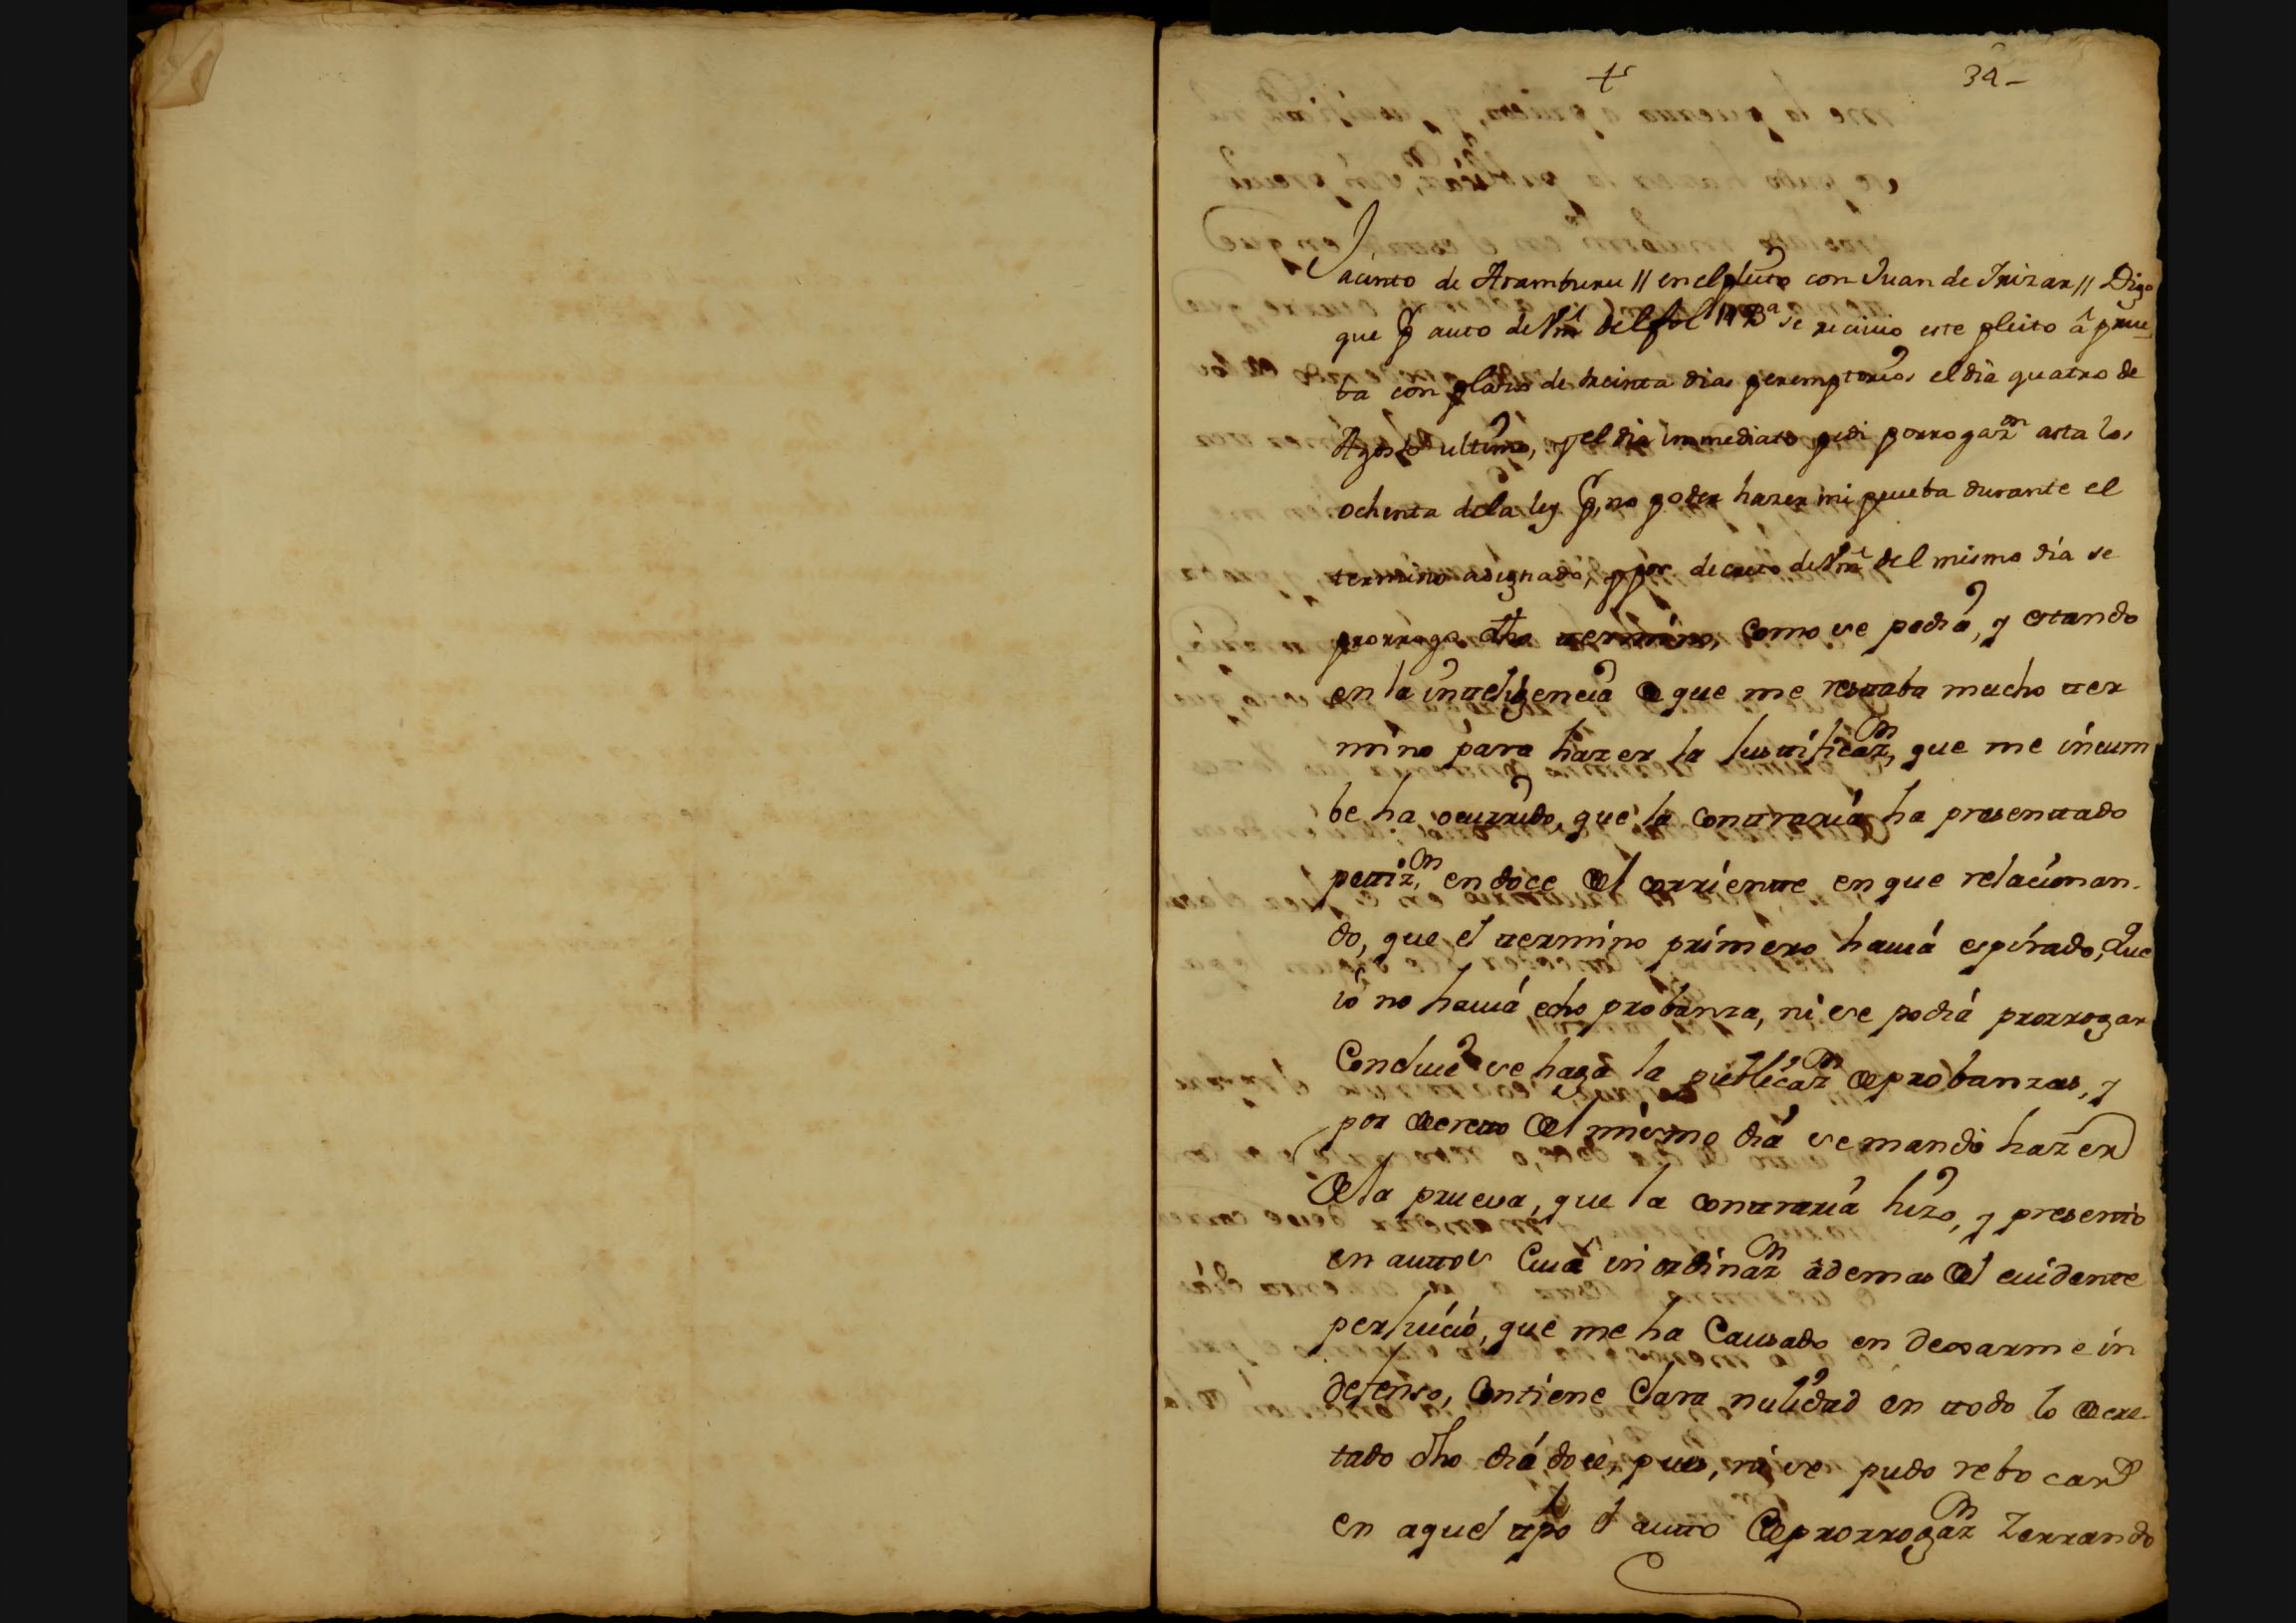 +
34-
Jacinto de Aramburu // en el pleito con Juan de Irizar // Digo
que p auto de Vm del fol se reciuio este pleito â prue
ba con plazo de treinta dias peremptorios el dia quatro de
Agosto ultimo, y el dia immediato pedi porrogazn asta los
ochenta dela ley p, no poder hazer mi prueba durante el
termino asignado, y por decreto de Vm del mismo día se
prorrogo dho termino, como se pedia, y estando
en la inteligencia de que me restaba mucho ter
mino para hazer la Iustificazn, que me incum
be ha ocurrido, que la contraria ha presentado
petizn, en doce del corriente en que relacionan-
do, que el termino primero hauiá espirado, Que
io no hauiá echo probanza, ni se podiá prorrogar
Concluie se haga la publicazn de probanzas, y
por decreto del mismo diá se mandó hazer
dela prueva, que la contraria hizo, y presentó
en auttos Cuia inordinazn ademas del euidente
perjuicio, que me ha Causado en dexarme in
defenso, Contiene Clara nulidad en todo lo decre-
tado dho diá doce, pues, ni se pudo rebocar
en aquel tpo el autto de prorrogazn Zerrando